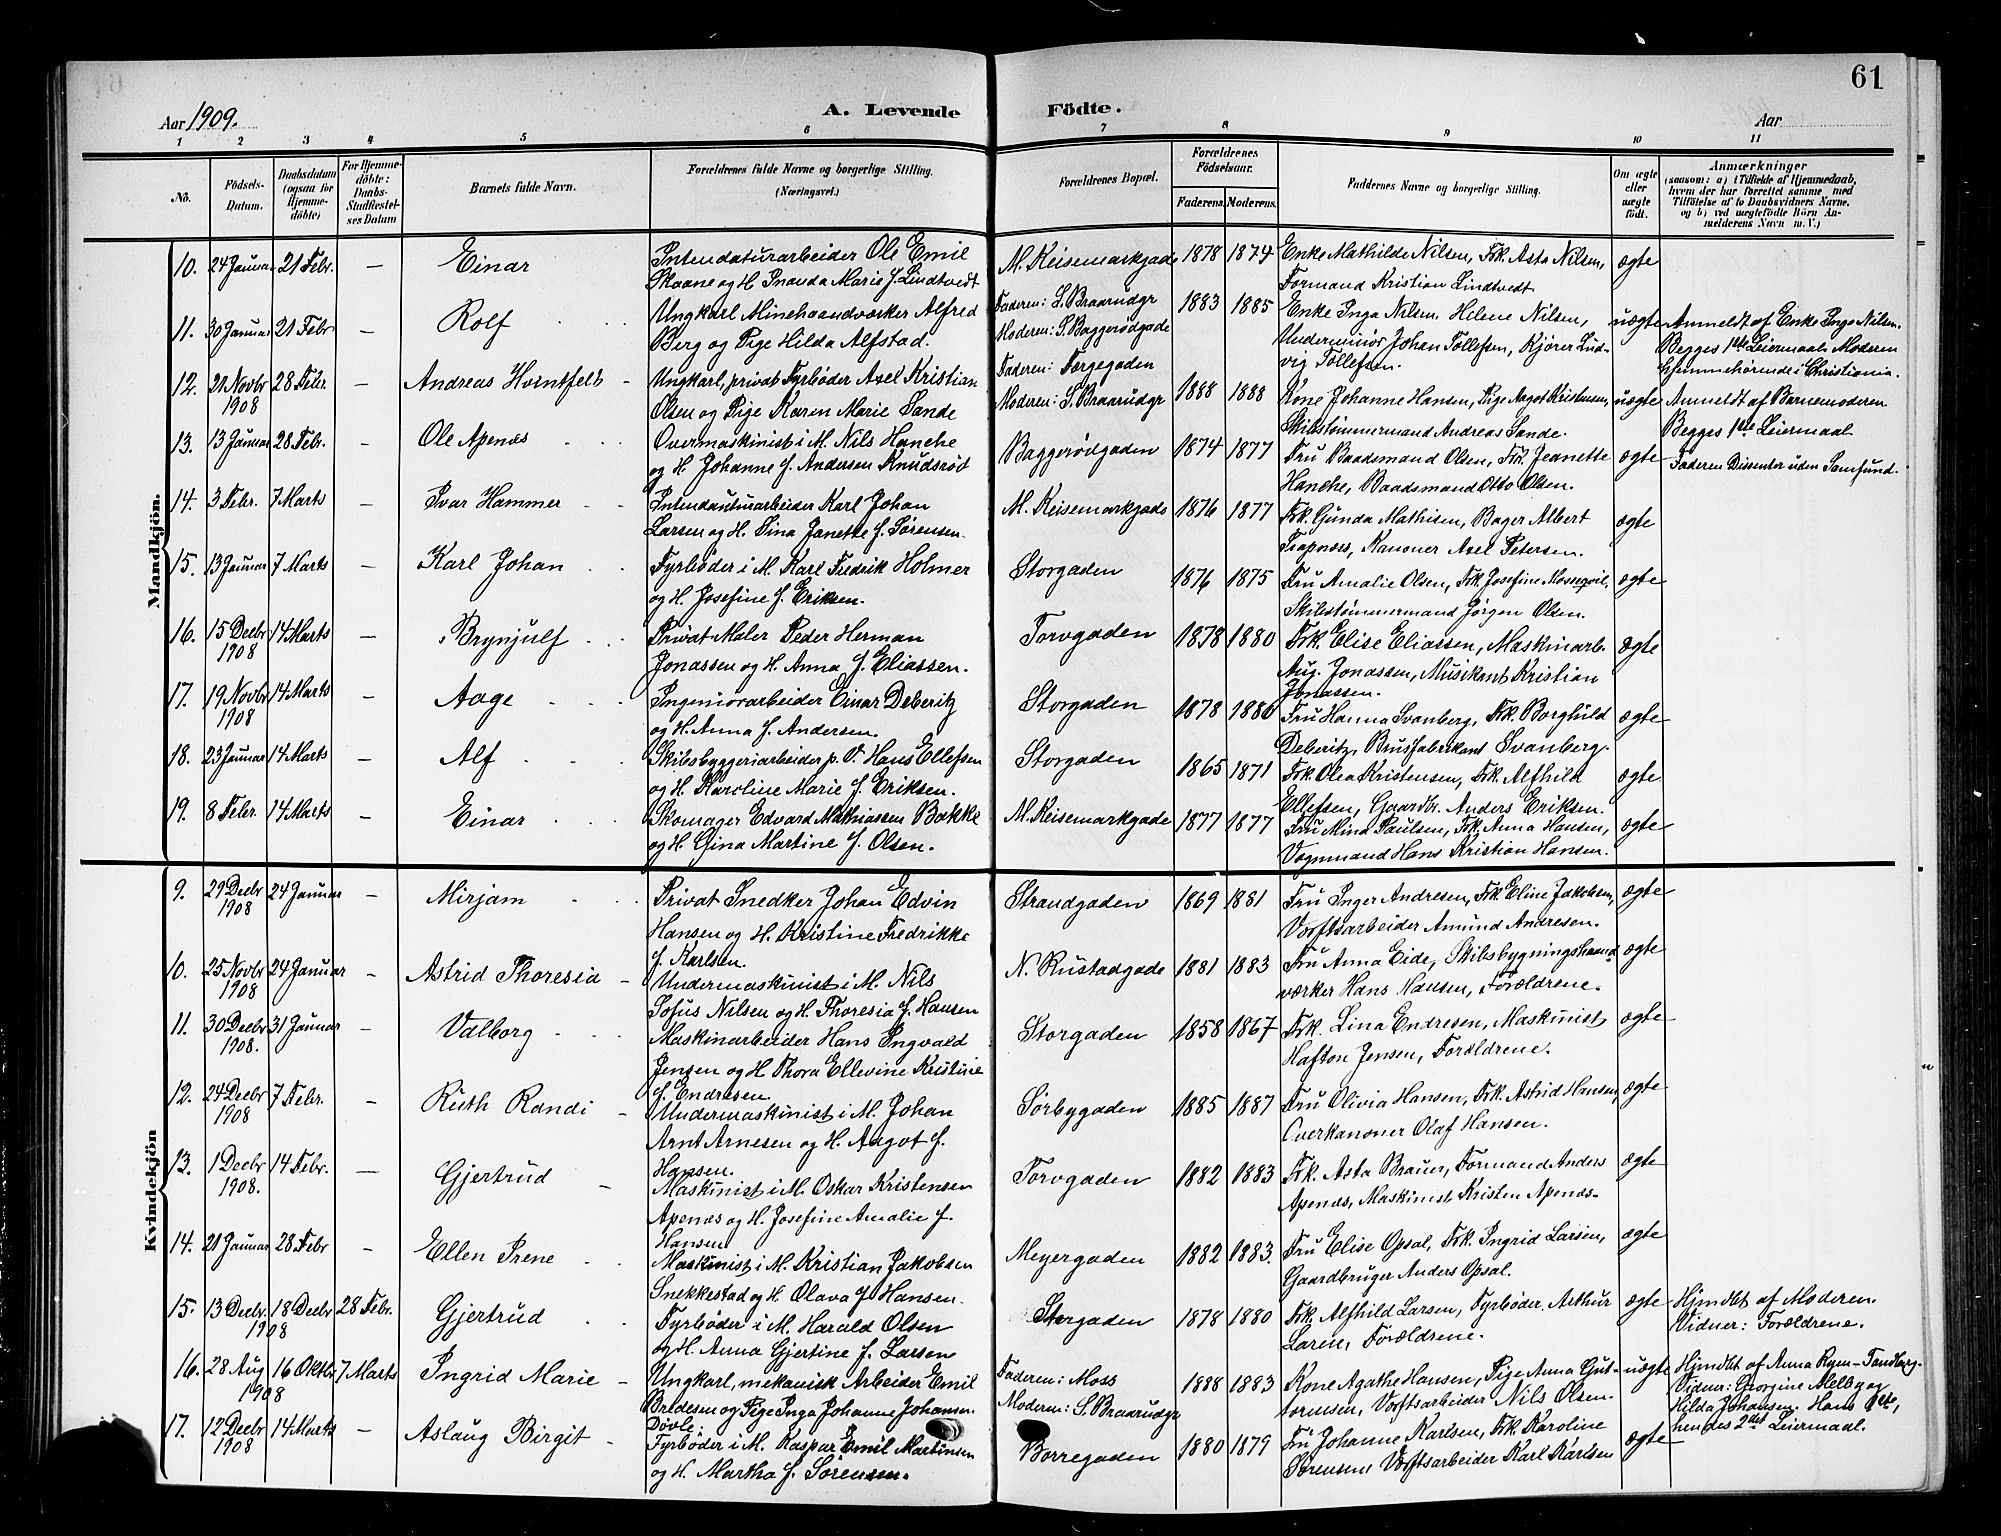 61
Aar 1909.
A. Levende Födte.
Aar
1 2 3 4 5 6 7 8 9 10 11
No.
Födsels-Datum.
Daabsdatum (ogsaa for Hjemmedöbte)
For Hjemmedöbte: Daabs-Stadfæstelses Datum
Barnets fulde Navn.
Forældrenes fulde Navne og borgerlige Stilling. (Næringsvei.)
Forældrenes Bopæl.
Forældrenes Födselsaar.
Faderens. Moderens.
Faddernes Navne og borgerlige Stilling.
Om ægte eller uægte födt.
Anmærkninger
(saasom: a) i Tilfælde af Hjemmedaab, hvem der har forrettet samme med Tilföielse af to Daabsvidners Navne, og b) ved uægtefödte Börn Anmelderens Navn m. V.)
Mandkjön.
10. 24 Januar 21 Febr. — Einar Intendaturarbeider Ole Emil
Skaane og H. Inavda Marie f. Lindtvedt
M. Keisemarkgade 1878 1874 Enke Mathilde Nilsen, Frk. Asta Nilsen,
Formand Kristian Lindtvedt ægte
11. 30 Januar 21 Febr — Rolf Ungkarl Minehaandværker Alfred
Berg og Pige Hilda Alfstad.
Faderen: S. Braarudgr
Moderen: S. Baggerödgade 1883 1885 Enke Inga Nilsen, Helene Nilsen,
Underminör Johan Tollefsen, Kjører Lud-
vig Tollefsen. uægte Anmeldt af Enke Inga Nilsen.
Begges 1ste Leiermaal. Moderen
hjemmehörende i Christiania.
12. 21 Novbr 28 Febr. — Andreas Hvintfelt Ungkarl, privat Fyrbøder Axel Kristian
1908
Olsen og Pige Karen Marie Sande
Faderen: Torgegaden
Moderen: S. Braarudgr 1888 1888 Kone Johanne Hansen, Pige Aagot Kristensen,
Skibstømmermand Andreas Sande. uægte Anmeldt af Barnemoderen
Begges 1ste Leiermaal
13. 13 Januar 28 Febr. — Ole Apenæs Overmaskinist i M. Nils Hanche
og H. Johanne f. Andersen Knudsrød
Baggerödgaden 1874 1877 Fru Baadsmand Olsen, Frk. Jeanette
Hanche, Baadsmand Otto Olsen. ægte Faderen Dissenter uden Samfund.
14. 3 Febr. 7 Marts — Ivar Hammer Intendanturarbeider Karl Johan
Larsen og H. Tina Janette f. Sørensen.
M. Keisemarkgade 1876 1877 Frk. Gunda Mathisen, Bager Albert
Trapnæs, Kanoner Axel Petersen. ægte
15. 13 Januar 7 Marts — Karl Johan Fyrbøder i M. Karl Fredrik Holmer
og H. Josefine f. Eriksen.
Storgaden 1876 1875 Fru Amalie Olsen, Frk. Josefine
Skibstømmermand Jørgen Olsen. ægte
16. 15 Decbr 14 Marts — Brynjulf Privat Maler Peder Herman
1908
Jonassen og H. Anna f. Eliassen.
Torvgaden 1878 1880 Frk. Elise Eliassen, Maskinarb.
Aug. Jonassen, Musikant Kristian
Jonassen. ægte
17. 19 Novbr 14 Marts — Aage Ingeniørarbeider Einar Deberitz
1908
og H. Anna f. Andersen.
Storgaden 1878 1880 Fru Hanna Svanberg, Frk. Borghild
Deberitz, Brusfabrikant Svanberg. ægte
18. 23 Januar 14 Marts — Alf Skibsbyggeriarbeider p. V. Hans Ellefsen
og H. Karoline Marie f. Eriksen.
Storgaden 1865 1871 Frk. Olea Kristensen, Frk. Alfhild
Ellefsen, Gaardbr. Anders Eriksen. ægte
19. 8 Febr. 14 Marts — Einar Skomager Edvard Mathiassen Bakke
og H. Gina Martine f. Olsen.
M. Keisemarkgade 1877 1877 Fru Mina Paulsen, Frk. Anna Hansen,
Vognmand Hans Kristian Hansen. ægte
Kvindekjön
9. 29 Decbr 24 Januar — Mirjam Privat Snedker Johan Edvin
1908
Hansen og H. Kristine Fredrikke
f. Karlsen.
Strandgaden 1869 1881 Fru Inger Andresen, Frk. Eline Jakobsen,
Værftsarbeider Amund Andresen. ægte
10. 25 Novbr 24 Januar — Astrid Thoresia Undermaskinist i M. Nils
1908
Sofus Nilsen og H. Thoresia f. Hansen
N. Rustadgade 1881 1883 Fru Anna Eide, Skibsbygningshaand-
værker Hans Hansen, Forældrene. ægte
11. 30 Decbr 31 Januar — Valborg Maskinarbeider Hans Ingvald
1908.
Jensen og H. Thora Ellevine Kristine
f. Endresen.
Storgaden 1858 1867 Frk. Lina Endresen, Maskinist
Hafton Jensen, Forældrene. ægte
12. 24 Decbr 7 Febr. — Ruth Randi Undermaskinist i M. Johan
1908
Arnt Arnesen og H. Aagot f.
Hansen.
Sørbygaden 1885 1887 Fru Olivia Hansen, Frk. Astrid Hansen,
Overkanoner Olaf Hansen. ægte
13. 1 Decbr 14 Febr. — Gjertrud Maskinist i M. Oskar Kristensen
1908.
Apenæs og H. Josefine Amalie f.
Hansen
Torvgaden 1882 1883 Frk. Asta Brauer, Formand Anders
Apenæs, Maskinist Kristen Apenæs. ægte
14. 21 Januar 28 Febr — Ellen Irene Maskinist i M. Kristian Jakobsen
Snekkestad og H. Olava f. Hansen.
Meyergaden 1882 1883. Fru Elise Opsal, Frk. Ingrid Larsen,
Gaardbruger Anders Opsal. ægte
15. 13 Decbr. 18 Decbr 28 Febr. Gjertrud Fyrbøder i M. Harald Olsen
1908
og H. Anna Gjertine f. Larsen
Storgaden 1878 1880 Frk. Alfhild Larsen, Fyrbøder Arthur
Laren, Forældrene. ægte Hjmdbt af Moderen.
Vidner: Forældrene.
16. 28 Aug 16 Oktbr 7 Marts Ingrid Marie Ungkarl, mekanisk Arbeider Emil
1908
og Pige Inga Johanne Johansen
Døvle.
Faderen: Moss
Moderen: S. Braarudgr 1888 1883 Kone Agathe Hansen, Pige Anna Gut-
tormsen, Værftsarbeider Nils Olsen. uægte Hjmdbt af Anna Ryen-Tandberg.
Vidner: Georgine Melby og
Hilda Johansen. Hans 1ste,
hendes 2det Leiermaal.
17. 12 Decbr 14 Marts — Aslaug Birgit Fyrbøder i M. Kaspar Emil Martinsen
1908
og H. Martha f. Sørensen.
Borregaden 1880 1879 Fru Johanne Karlsen, Frk. Karoline
Sørensen, Værftsarbeider Karl Karlsen ægte